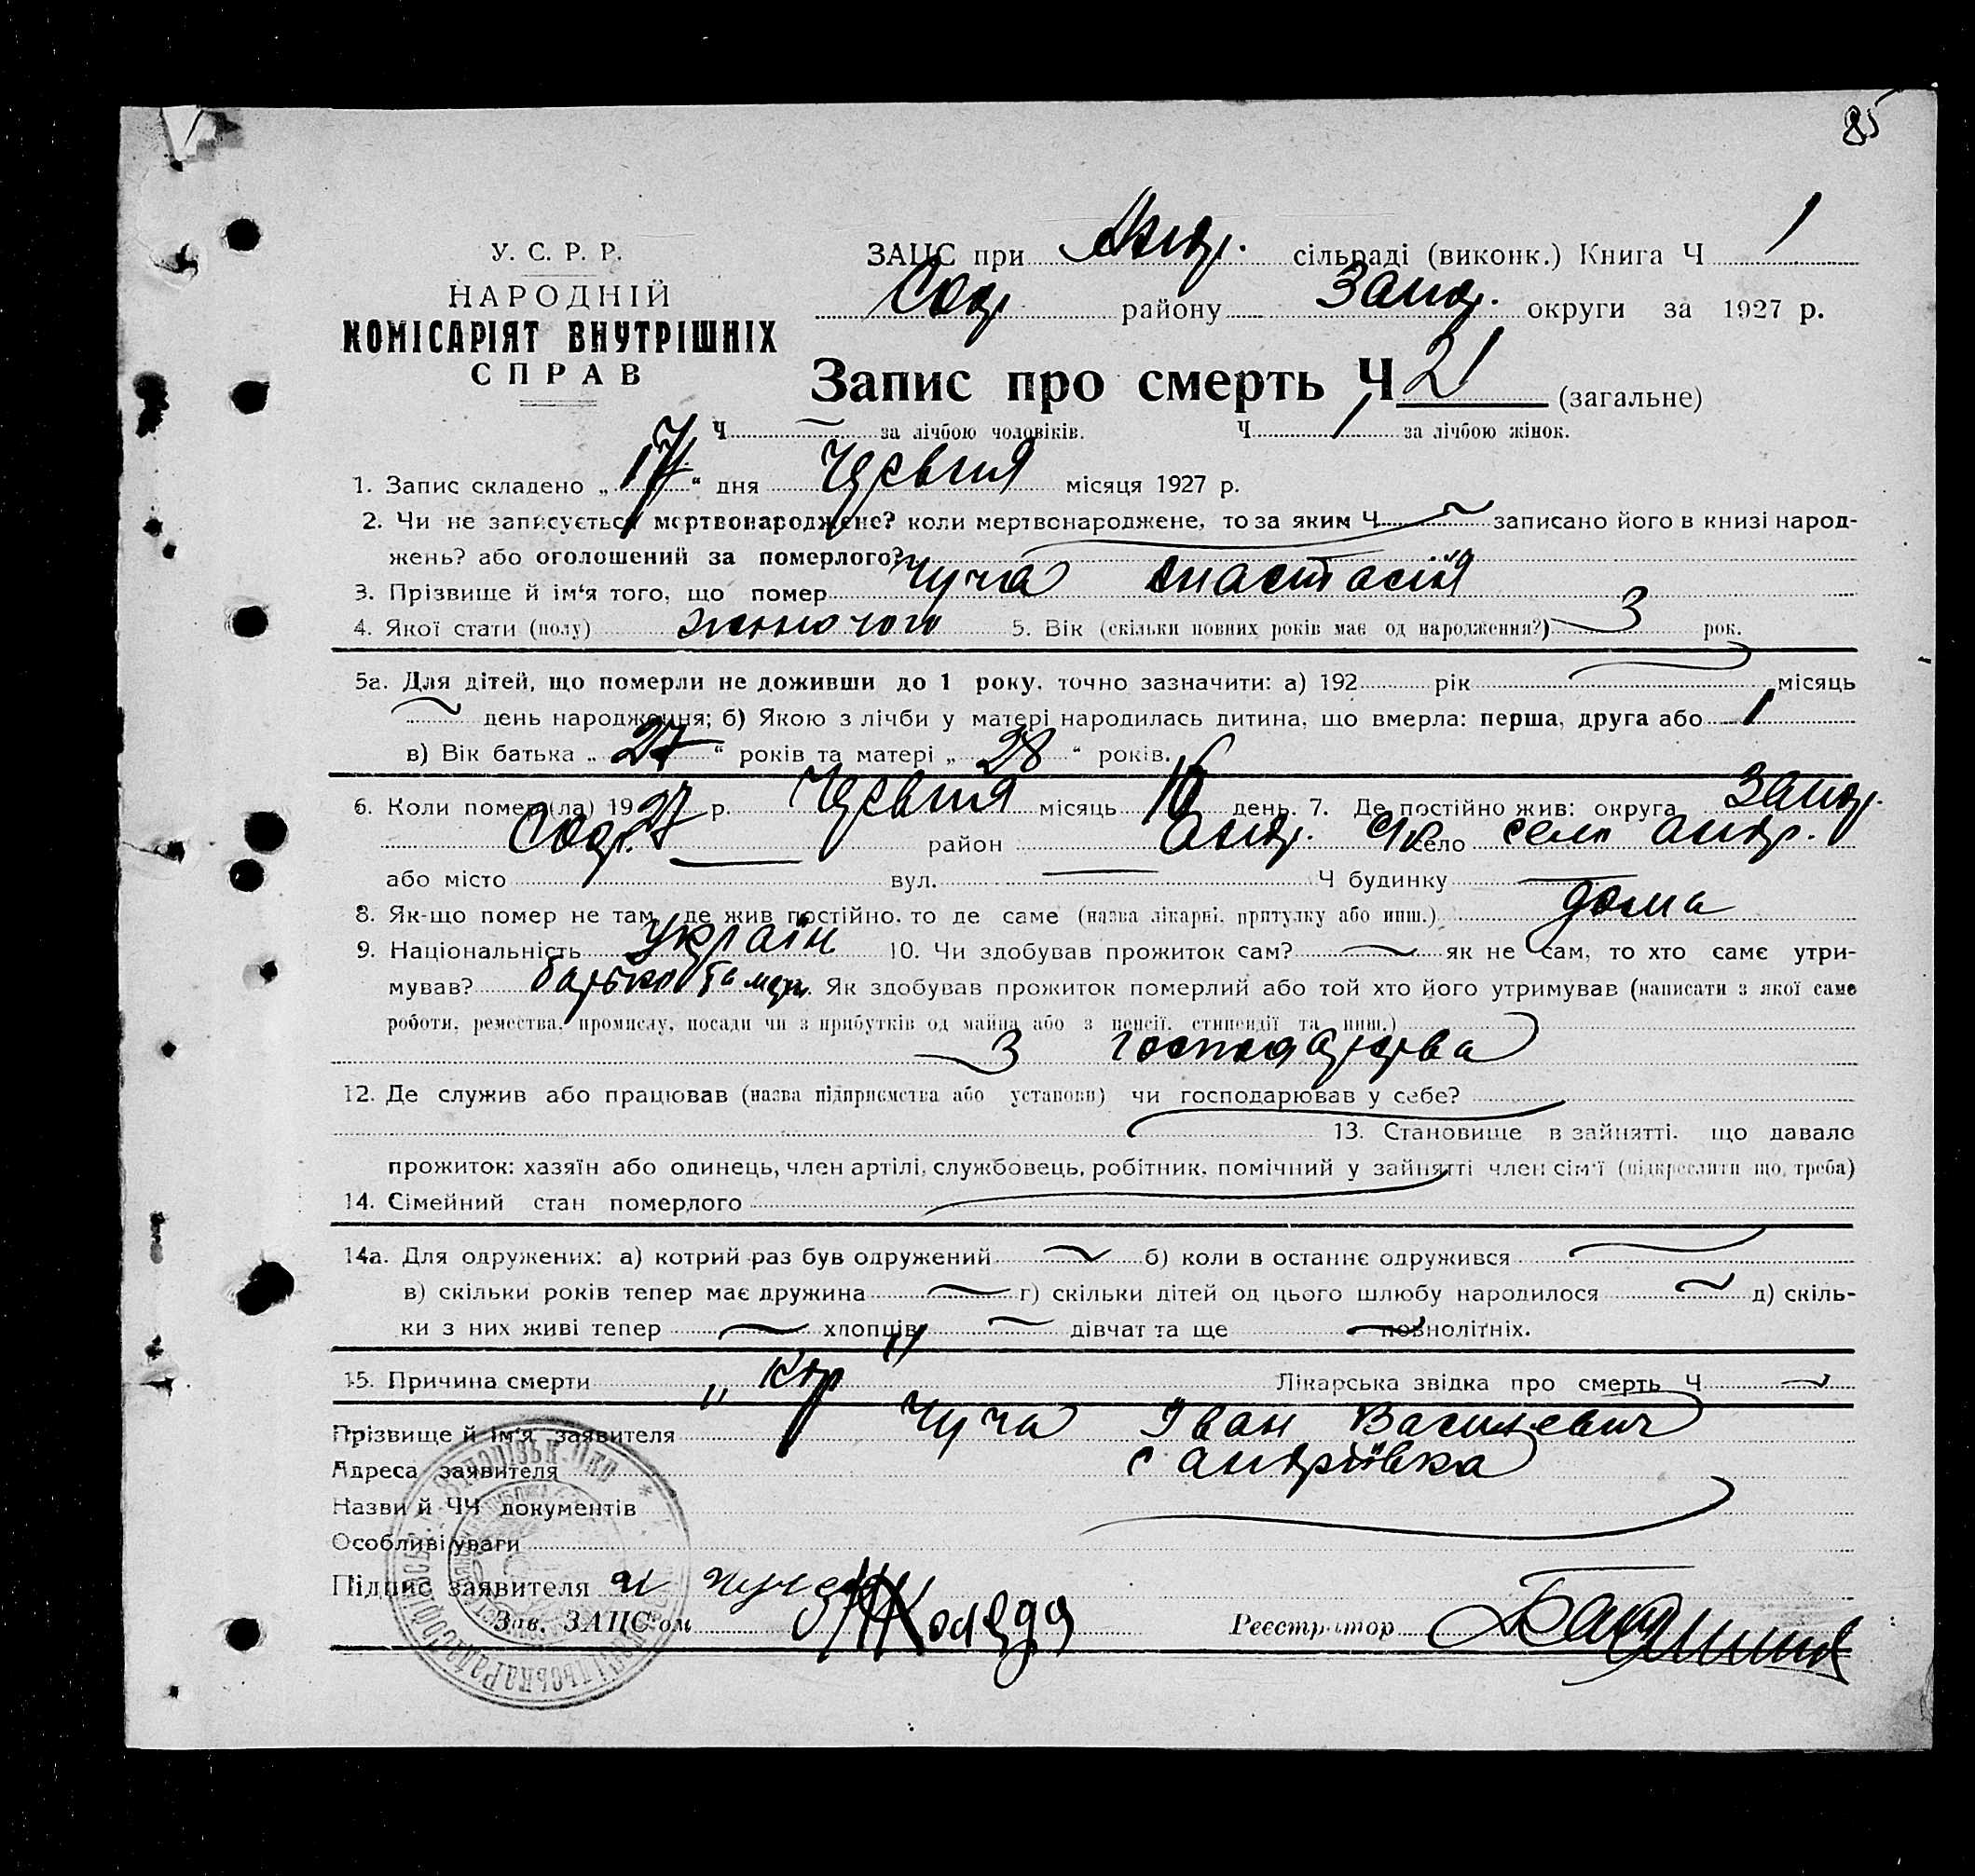 85
У. С. Р. Р.
НАРОДНІЙ
КОМІСАРІЯТ ВНУТРІШНІХ
СПРАВ
ЗАЦС при Андр. сільраді (виконк.) Книга Ч 1
Соф району Запор. округи за 1927 р.
Запис про смерть Ч 21 (загальне)
Ч за лічбою чоловіків. Ч 1 за лічбою жінок.
1. Запис складено „17“ дня Червня місяця 1927 р.
2. Чи не записується мертвонароджене? коли мертвонароджене, то за яким Ч записано його в книзі народ-
жень? або оголошений за померлого?
3. Прізвище й ім‘я того, що помер Чуча Анастасія
4. Якої стати (полу) жіночого 5. Вік (скільки повних років має од народження?) 3 рок.
5а. Для дітей, що померли не доживши до 1 року, точно зазначити: а) 192 рік місяць
день народження; б) Якою з лічби у матері народилась дитина, що вмерла: перша, друга або 1
в) Вік батька „27“ років та матері „28“ років.
6. Коли помер(ла) 1927 р. Червня місяць 16 день. 7. Де постійно жив: округа Запор.
Соф. район Андр. село село Андр.
або місто вул. Ч будинку
8. Як-що помер не там, де жив постійно, то де саме (назва лікарні, притулку або инш.) дома
9. Національність україн 10. Чи здобував прожиток сам? як не сам, то хто саме утри-
мував? батько та мати. Як здобував прожиток померлий або той хто його утримував (написати з якої саме
роботи, ремества, промислу, посади чи з прибутків од майна або з пенсії, стипендії та инш.)
З господарства
12. Де служив або працював (назва підприємства або установи) чи господарював у себе?
13. Становище в зайнятті, що давало
прожиток: хазяїн або одинець, член артілі, службовець, робітник, помічний у зайнятті член сім‘ї (підкреслити що треба)
14. Сімейний стан померлого
14а. Для одружених: а) котрий раз був одружений б) коли в останнє одружився
в) скільки років тепер має дружина г) скільки дітей од цього шлюбу народилося д) скіль-
ки з них живі тепер хлопців дівчат та ще повнолітніх.
15. Причина смерти „Кір“ Лікарська звідка про смерть Ч
Прізвище й ім‘я заявителя Чуча Іван Васильевич
Адреса заявителя с Андріївка
Назви й ЧЧ документів
Особливі уваги
Підпис заявителя
Зав. ЗАЦС‘ом Коляда Реєстратор